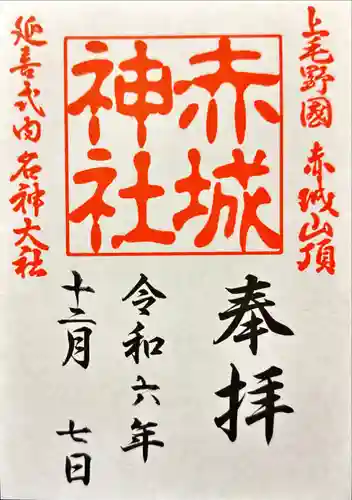 上毛野國 赤城山頂
赤城
神社
延喜式内 名神大社
奉拝
令和六年
十二月 七日